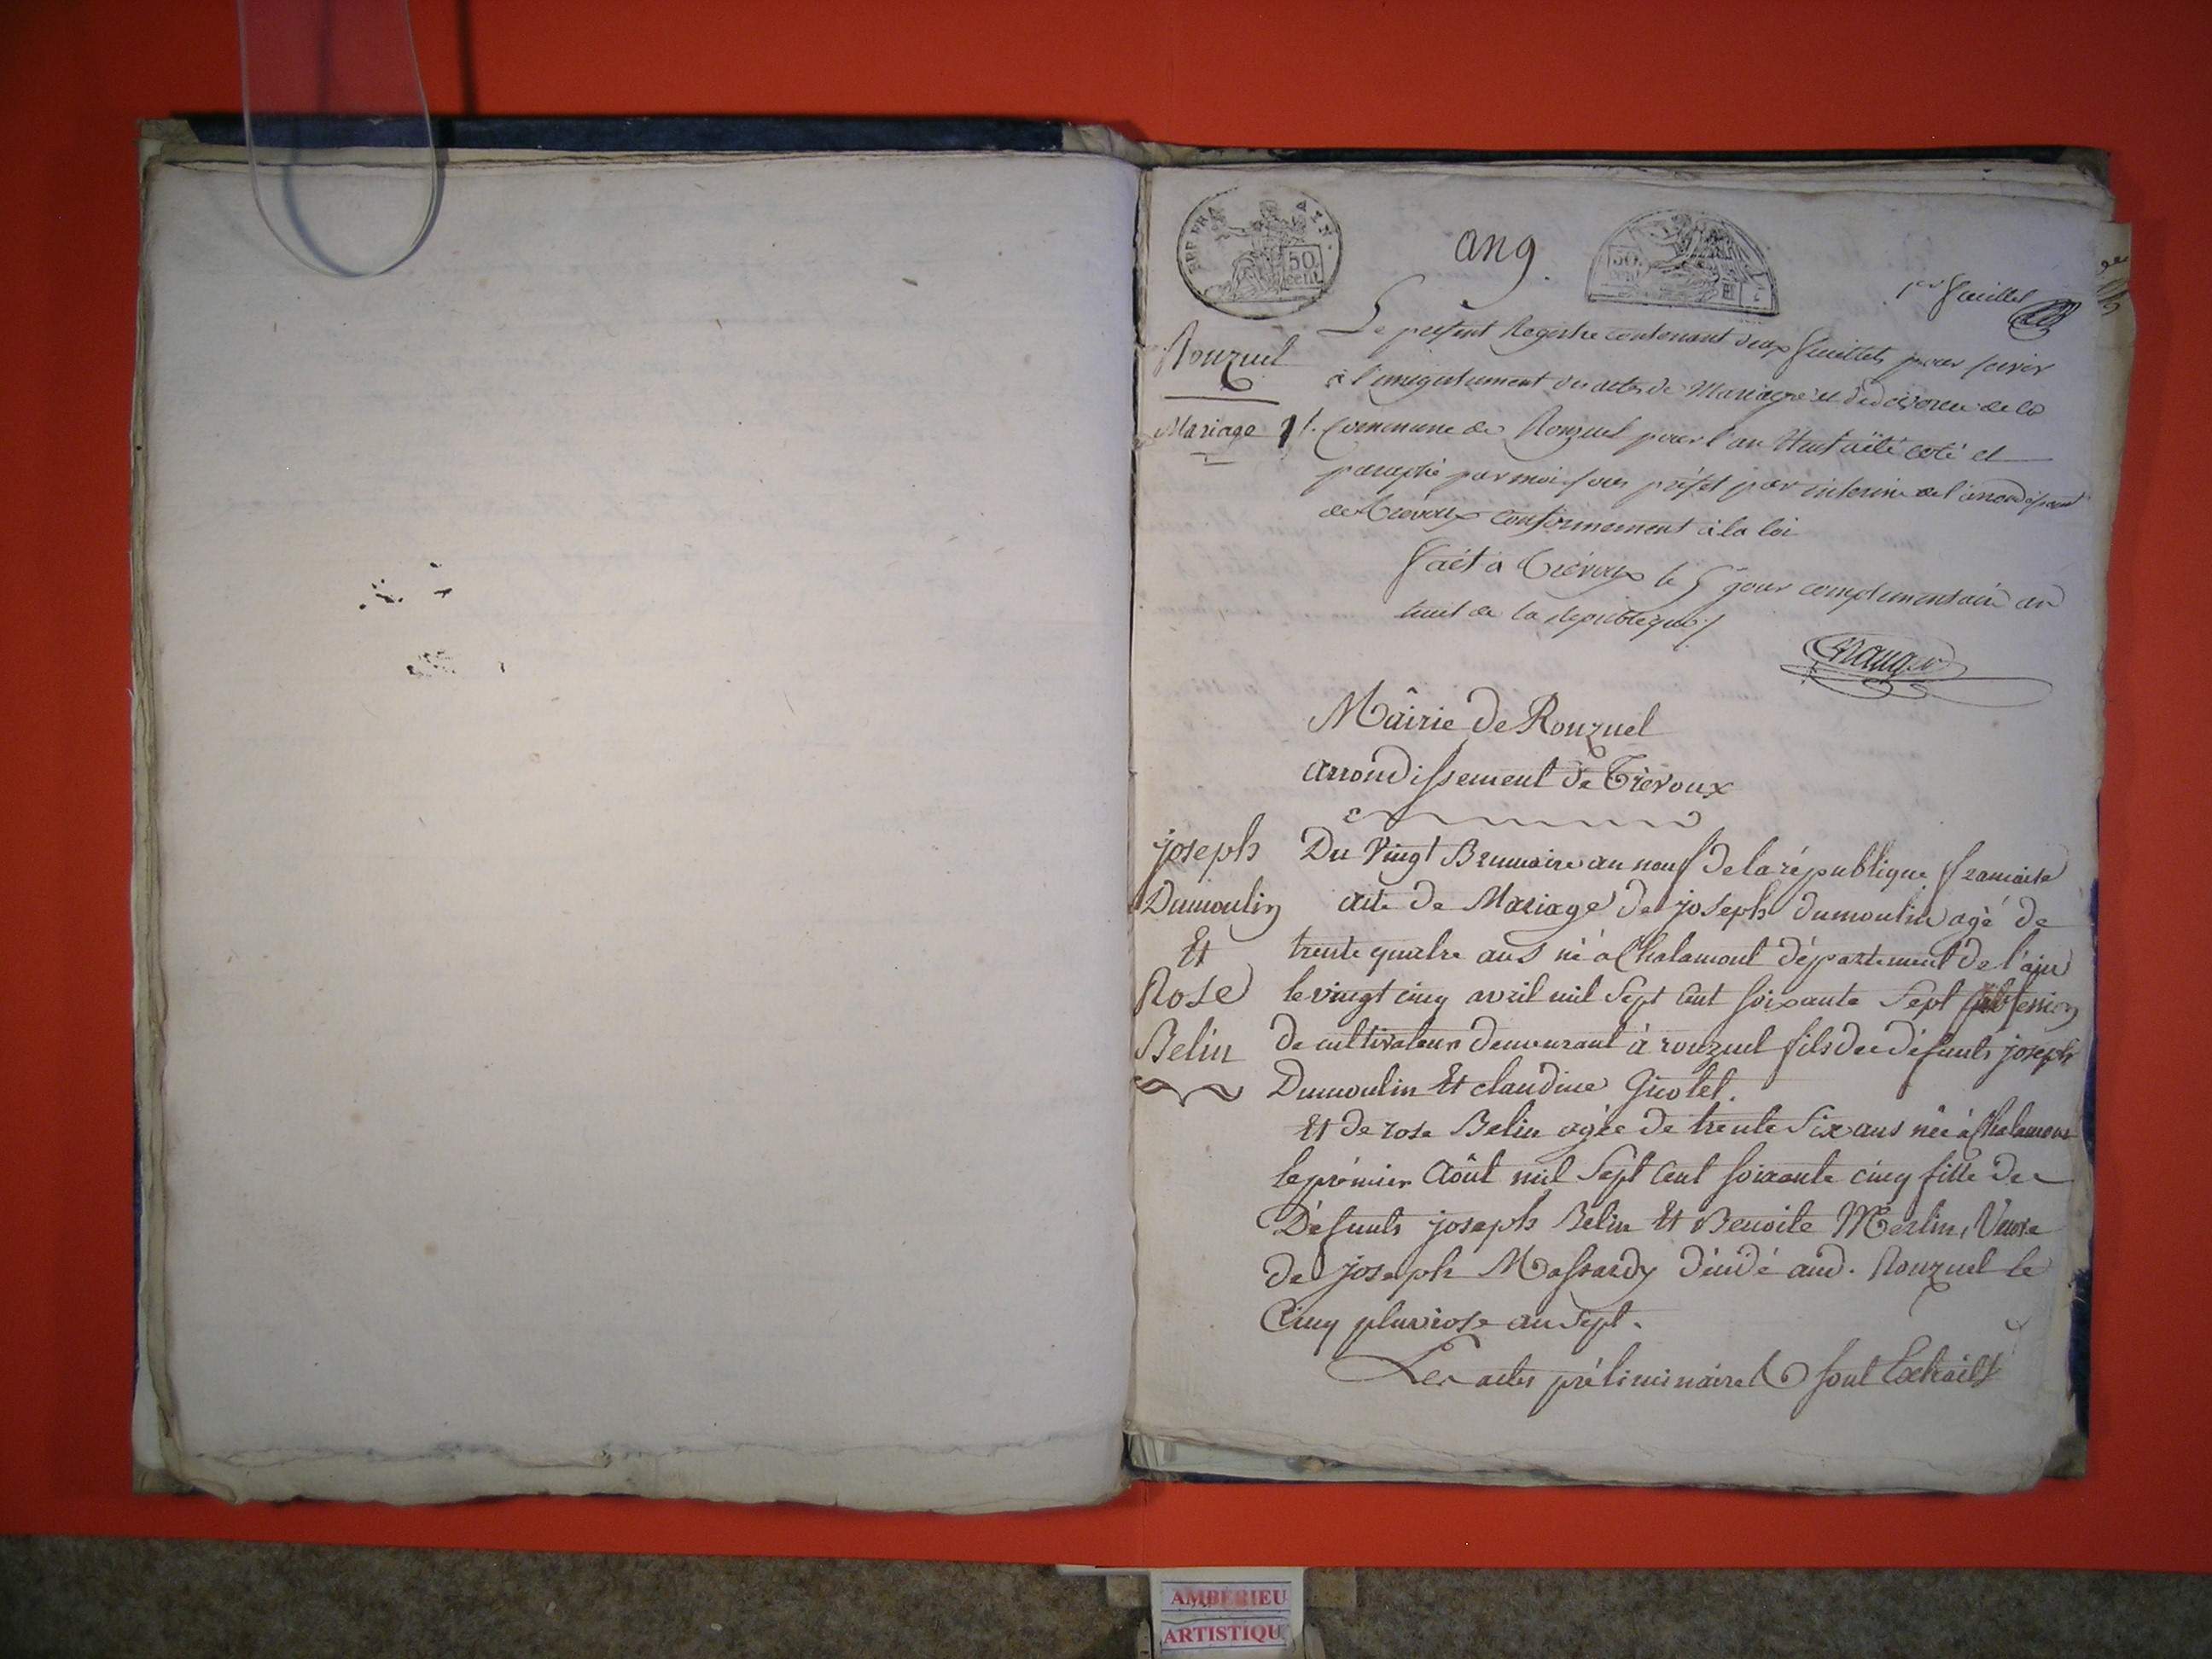 REP. FRA
50
cent.
an 9.
50
1er feuillet
Ronzuel
Mariage
Le présent Registre contenant deux feuillets pour servir
à l'enregistrement des actes de Mariage et de divorce de la
Commune de Ronzuel pour l'an Neuf a été coté et
paraphé par moi sous préfet par interim de l'arrondissement
de Trévoux conformement à la loi
fait à Trévoux le 5e jour complementaire an
huit de la Republique
Mâirie de Ronzuel
arrondissement de Trévoux
joseph
Dumoulin
Et
Rose
Belin
Du Vingt Brumaire an neuf de la république francaise
acte de Mariage de joseph dumoulin agé de
trente quatre ans né à Chalamont département de l'ain
le vingt cinq avril mil Sept Cent soixante Sept profession
de cultivateur demeurant à ronzuel fils des défunts joseph
Dumoulin Et claudine
Et de rose Belin agée de trente Six ans née à Chalamont
le prémier Aôut mil Sept Cent soixante cinq fille des
Défunts joseph Belin Et Benoite Merlin, Veuve
de joseph Massardy décédé aud. Ronzuel le
Cinq pluviose an Sept.
Les actes préliminaires sont Extraits
AMBERIEU
ARTISTIQU